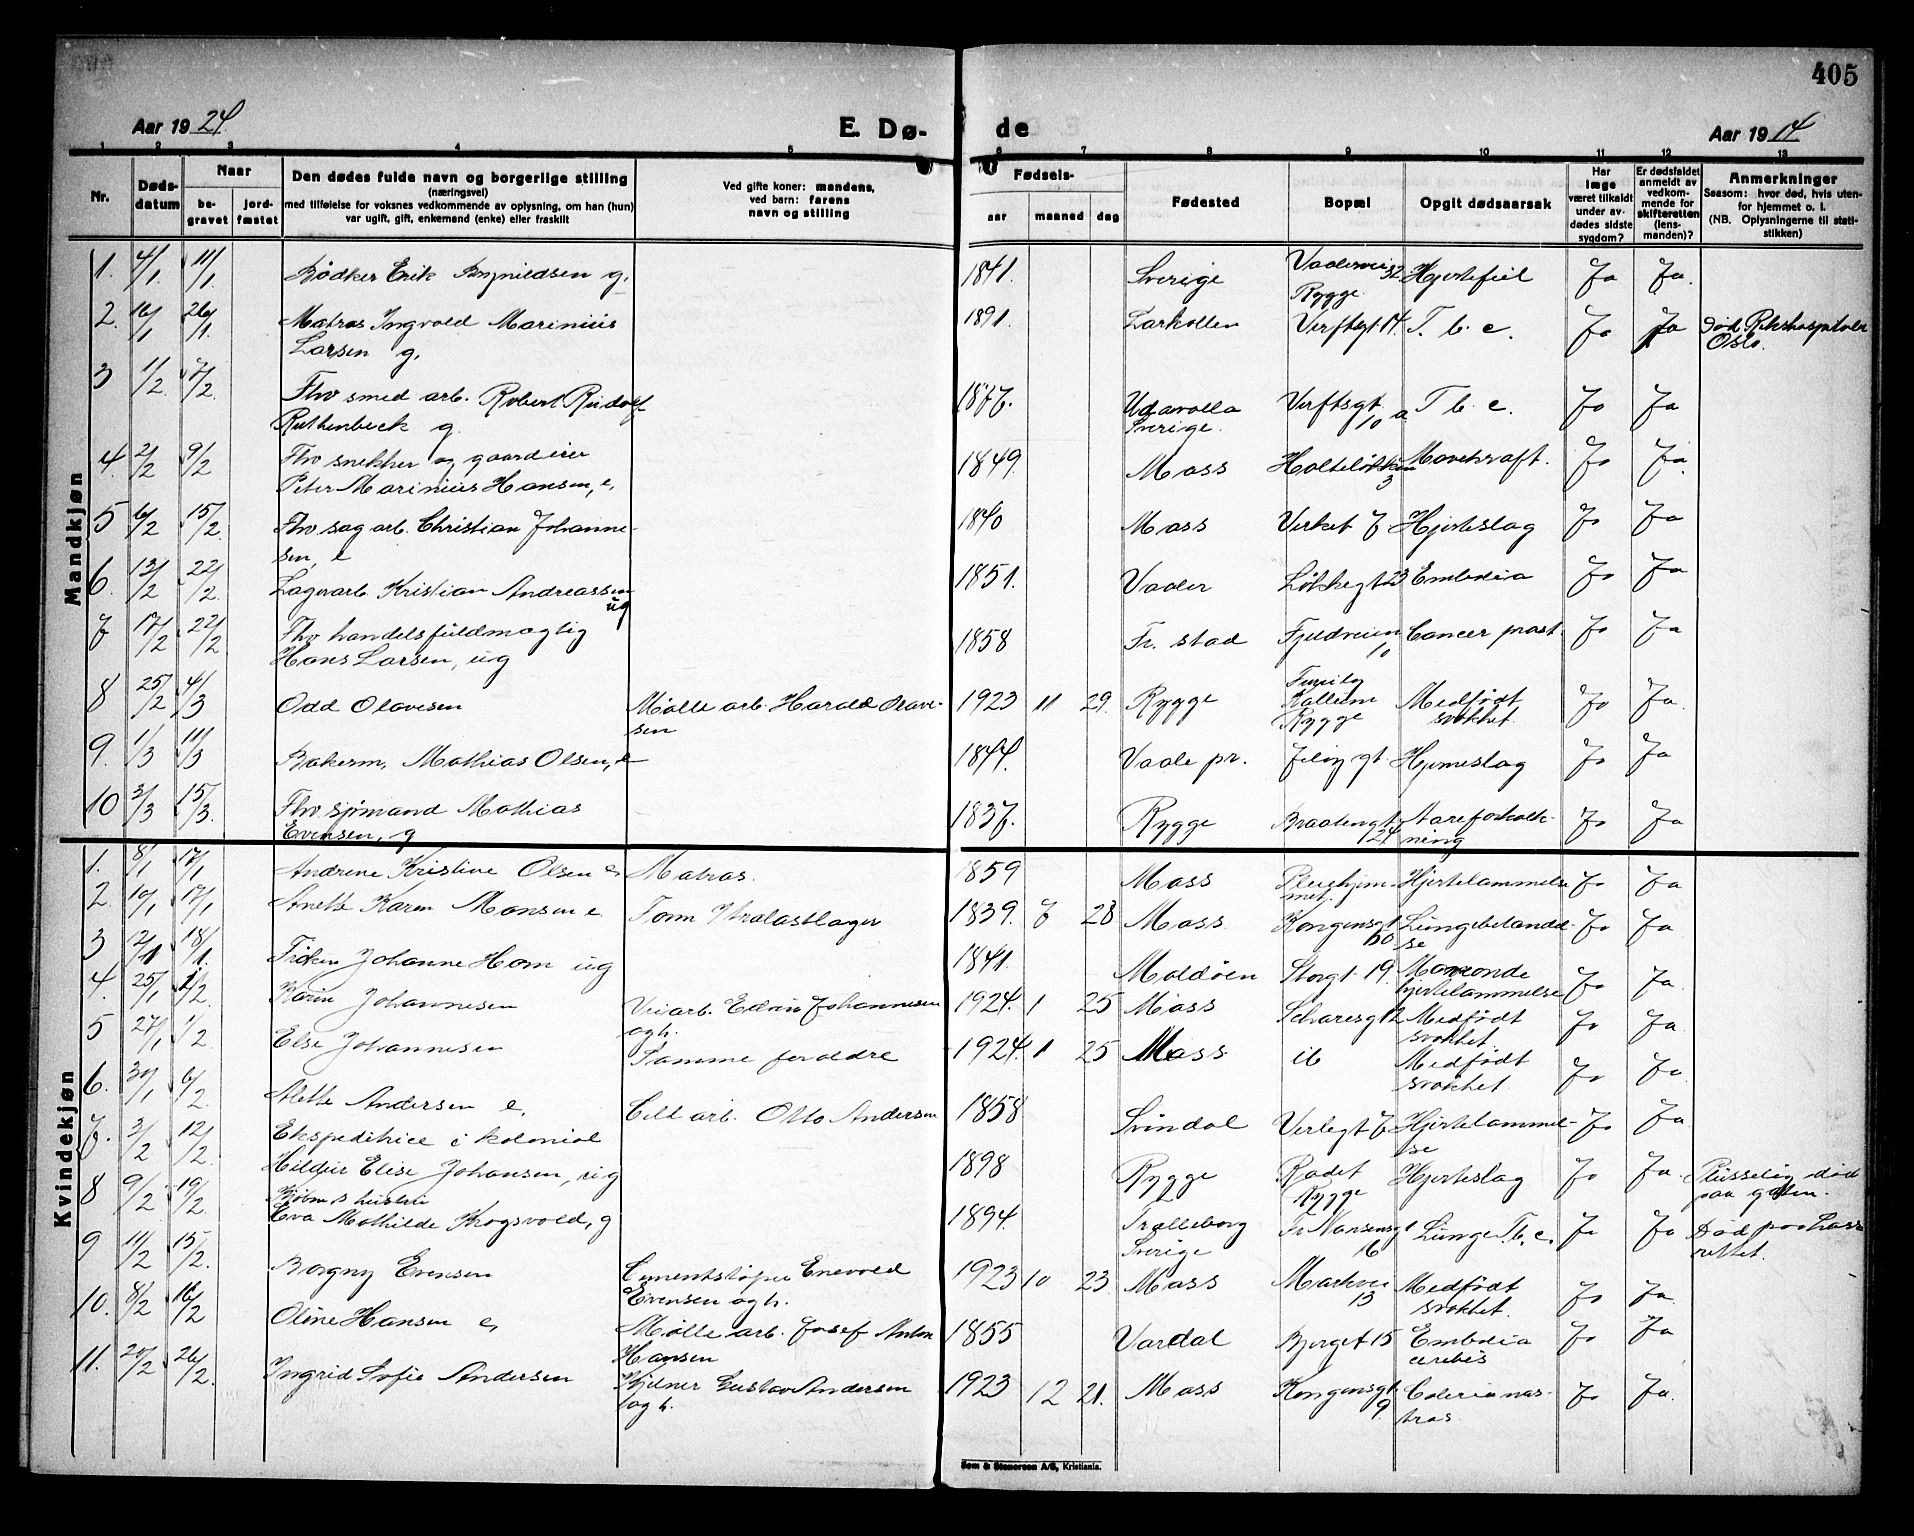 405
Aar 1924.
E. Dø-
de
Aar 1914
1 2 3 4 5 6 7 8 9 10 11 12 13
Nr.
Døds-
datum
Naar
be-
gravet
jord-
fæstet
Den dødes fulde navn og borgerlige stilling
(næringsvei)
med tilføielse for voksnes vedkommende av oplysning, om han (hun)
var ugift, gift, enkemand (enke) eller fraskilt
Ved gifte koner: mandens,
ved barn: farens
navn og stilling
Fødsels-
aar
maaned
dag
Fødested
Bopæl
Opgit dødsaarsak
Har
læge
været tilkaldt
under av-
dødes sidste
sygdom?
Er dødsfaldet
anmeldt av
vedkom-
mende for
skifteretten
(lens-
manden)?
Anmerkninger
Seasom: hvor død, hvis uten-
for hjemmet o. l.
(NB. Oplysningerne til stati-
stikken)
Mandkjøn
1. 4/1. 11/1 Bødker Erik Brynildsen g. 1841. Sverige Vaalervei 32 Rygge Hjertefeil Ja Ja.
2. 16/1 26/1 Matros Ingvald Marinius
Larsen g. 1891. Larkollen Verftsgt 14. T. b. c. Ja Ja Død Rikshospitalet
Oslo.
3 1/2. 7/2 Fhv smed arb. Robert Rudolf
Ruthenbeck g. 1877. Udavolla
Sverige. Verftsgt.
10 a T. b. c. Ja Ja
4. 2/2 9/2 Fhv snekker og gaardeier
Peter Marinius Hansen, e. 1849. Moss Holteløkken
3 Mavekræft. Ja Ja.
5 6/2 15/2. Fhv sag arb. Christian Johanne-
sen, e 1840 Moss Verket 7 Hjerteslag Ja Ja
6. 13/2 22/2. Lagerarb. Kristian Andreassen
ug 1851. Vaaler Løkkegt 23 Embolia Ja Ja
7 17/2 22/2 Fhv handelsfuldmægtig
Hans Larsen, ug 1858 Fr. stad Fjeldveien
10 Cancer prost. Ja Ja
8 25/2 4/3 Odd Olavesen Mølle arb. Harald Olave-
sen 1923 11 29. Rygge
Kallum
Rygge Medfødt
svakhet. Ja Ja.
9. 1/3 11/3 Bakerm. Mathias Olsen, e 1844. Vaale pr. Jeløy gt Hjerneslag Ja Ja
10 3/3 15/3. Fhv sjømand Mathias
Evensen, g 1837. Rygge Braatengt
24 Aareforkalk-
ning Ja Ja
Kvindekjøn
1. 8/1 17/1 Andrine Kristine Olsen e Matros. 1859 Moss Pleiehjem-
met. Hjertelammelse Ja Ja
2. 10/1 17/1 Anette Karen Monsen e 1839. 7 28 Moss Kongensgt
50 Lungebetændel-
se Ja Ja
3 12/1 18/1. Frøken Johanne Horn ug 1841. Moldøen Storgt. 19. hjertelammelse Ja Ja
4. 25/1 1/2 Karin Johannesen Veiarb. Edvin Johannesen
og h. 1924. 1 25 Moss 12 Medfødt
svakhet. Ja Ja
5 27/1 1/2 Else Johannesen Samme foreldre 1924. 1 25 Moss ib Medfødt
svakhet Ja Ja
6. 30/1 6/2. Alette Andersen e. Cell arb. Otto Andersen 1858 Svindal Verlegt 7 Hjertelammel-
se Ja Ja
7. 3/2 12/2. Ekspeditrice i kolonial
Hildur Elise Johansen, ug 1898 Rygge Rødet
Rygge Hjerteslag Ja Ja. Plusselig død
paa gaten.
8 9/2 19/2. Kjøbm.s hustru
Eva Mathilde Krogsvold, g 1894. Trælleborg
Sverige Fr Nansensgt
16 Lunge T. b. c. Ja Ja Død paa Lasa-
rettet.
9 11/2 15/2. Borgny Evensen Cementstøper Enevold
Evensen og h. 1923 10 23. Moss Markvei
13 Medfødt
svakhet. Ja Ja.
10. 8/2 16/2 Oline Hansen e. Mølle arb. Josef Anton
Hansen 1855 Vardal Bjerget 15 Embolia
cerebris Ja Ja
11. 20/2 26/2. Ingrid Sofie Andersen Gustav Andersen
og h. 1923 12 21. Moss Kongensgt
9. Ja Ja.
Sem & Stenersen A/S, Kristiania.